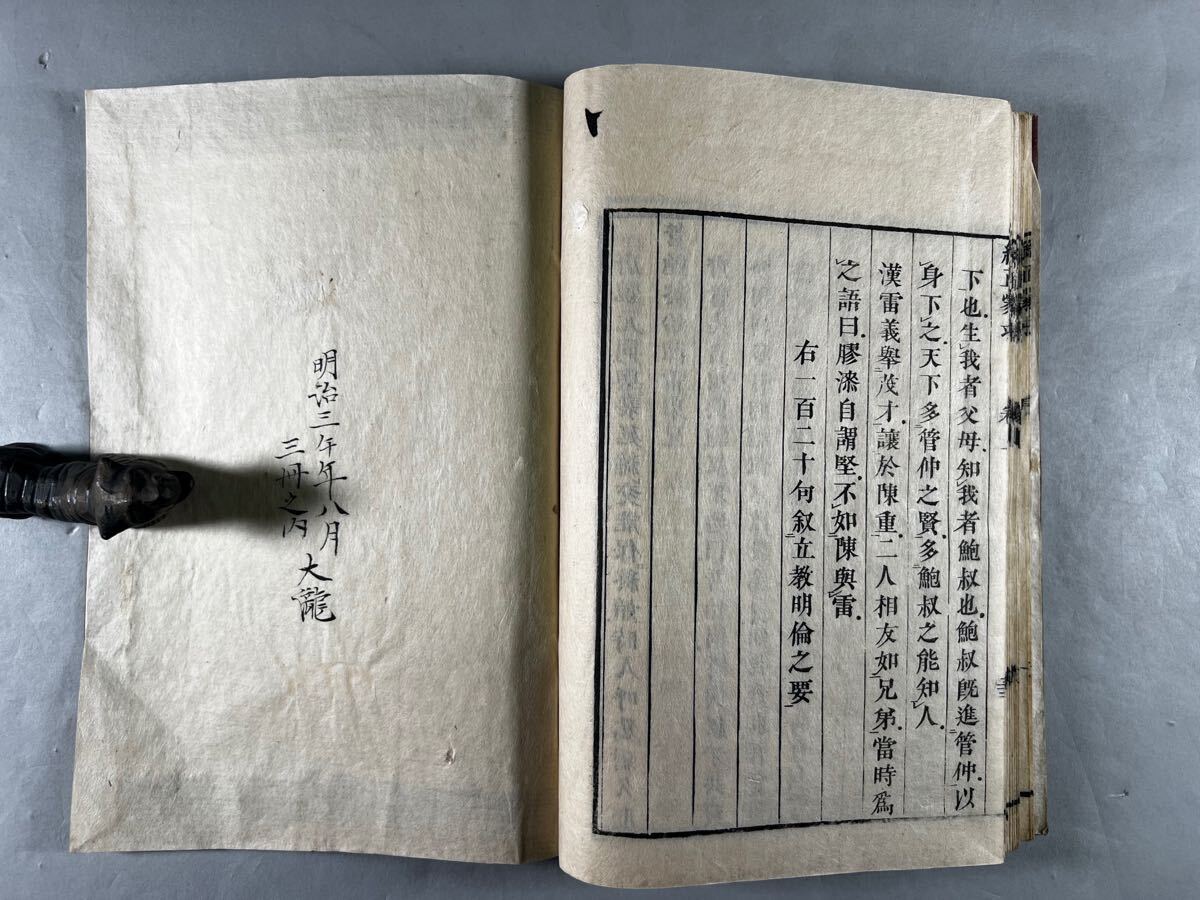 下也生我者父母知我者鮑叔也鮑叔旣進管仲以
身下之天下多管仲之賢多鮑叔之能知人
漢雷義舉茂才讓於陳重二人相友如兄弟當時爲
之語曰膠漆自謂堅不如陳與雷
右一百二十句叙立教明倫之要
明治三午年八月 大龍
三冊之内